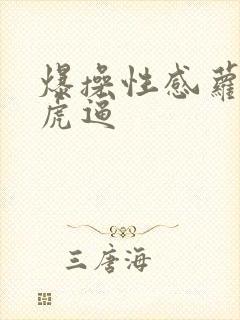 爆操性感蘿
虎逼
三唐海